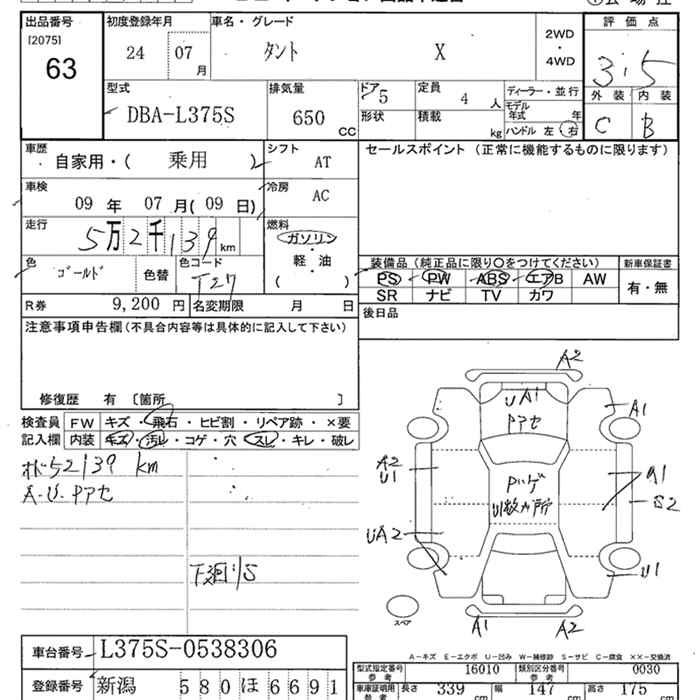 出品番号 初度登録年月 車名・グレード 評価点
[2075]
63
24 07月 タント X 2WD・4WD 3.5
外装 内装
C B
型式 排気量 ドア 定員 ディーラー・並行
DBA-L375S 650 CC 5 4 人
形状 積載 kg モデル年式 年
ハンドル 左 右
車歴 シフト セールスポイント (正常に機能するものに限ります)
自家用・( 乗用 ) AT
車検 冷房
09 年 07 月( 09 日) AC
走行 燃料
5万2千139 km ガソリン・軽・油
( )
装備品 (純正品に限り〇をつけてください) 新車保証書
PS PW ABS エアB AW 有・無
SR ナビ TV カワ
色 ゴールド 色替 色コード T27
R券 9,200 円 名変期限 月 日
後日品
注意事項申告欄(不具合内容等は具体的に記入して下さい)
修復歴 有 〔箇所 〕
検査員 FW キズ・飛石・ヒビ割・リペア跡・×要
記入欄 内装 キズ・汚レ・コゲ・穴・スレ・キレ・破レ
52139 km
A.U.Pアセ
下廻りS
A2
UA1
Pアセ
A1
A2
U1
Pハゲ
U1数カ所
A1
S2
UA2
U1
スペア
A1 A2
A-キズ E-エクボ U-凹み W-補修跡 S-サビ C-腐食 ××-交換済
車台番号 L375S-0538306
型式指定番号 参考 16010 類別区分番号 参考 0030
登録番号 新潟 580 ほ 6691
車庫証明用 参考 長さ 339 幅 147 高さ 175